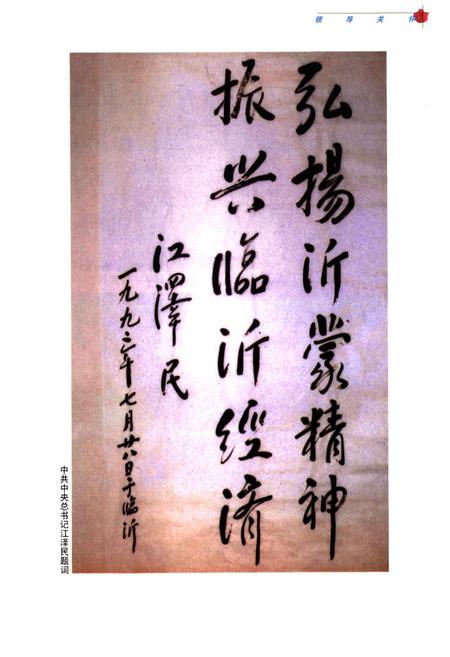 领导关怀
弘揚沂蒙精神
振兴臨沂經济
江澤民
一九九二年七月廿八日于臨沂
中共中央总书记江泽民题词